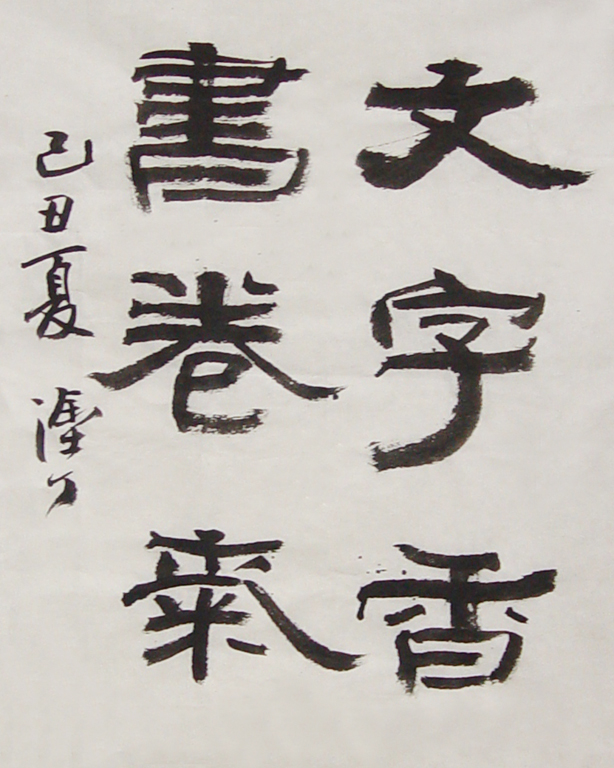 文字香
書卷氣
己丑夏